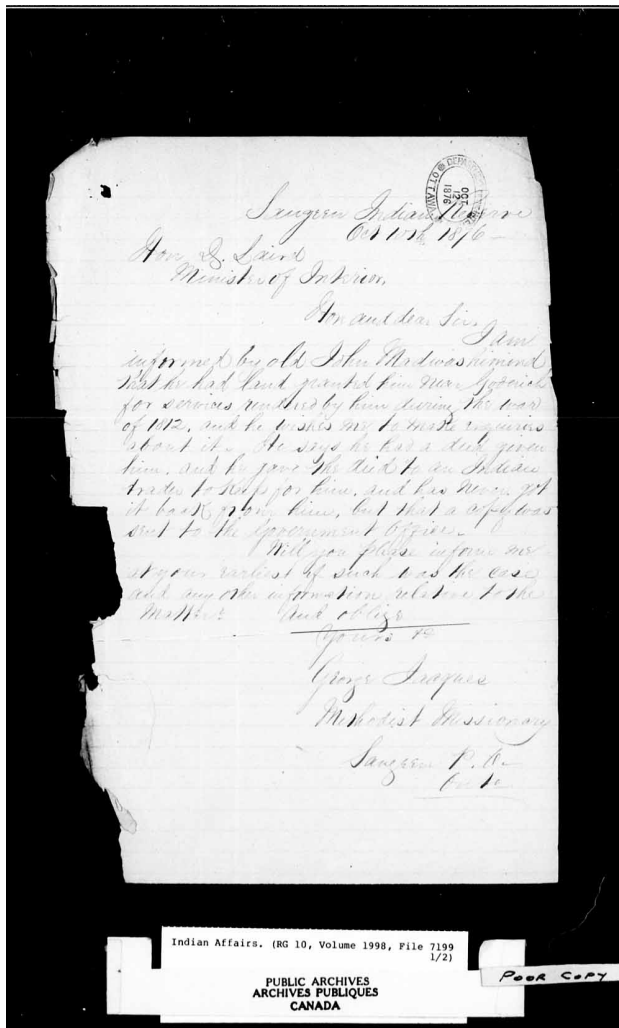 Saugeen Indian Reserve
Oct 10th 1876
OTTAWA
OCT
12
1876
Hon D. Laird
Minister of Interior,
Hon and dear Sir,
I am
informed by old John
that he had land granted him near Goderich
for services rendered by him during the war
of 1812, and he wishes me to make inquiries
about it. He says he had a deed given
him, and he gave the deed to an Indian
trader to keep for him, and has never got
it back from him, but that a copy was
sent to the Government Offices.
Will you please inform me
at your earliest if such was the case
and any other information relative to the
Matter. And oblige
Yours &c
George Jacques
Methodist Missionary
Saugeen P. O.
Ont
Indian Affairs. (RG 10, Volume 1998, File 7199
1/2)
PUBLIC ARCHIVES
ARCHIVES PUBLIQUES
CANADA
POOR COPY